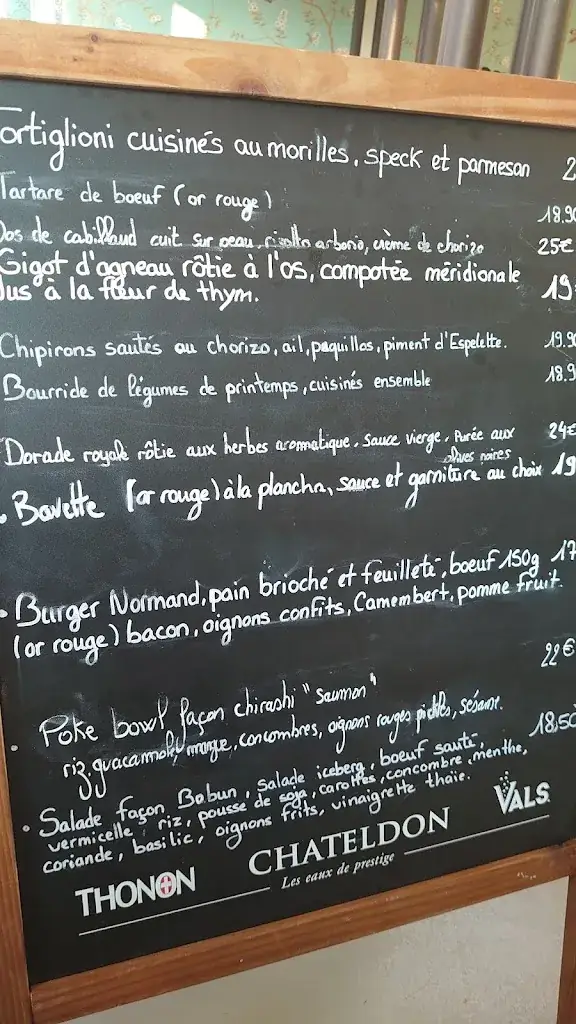 ortiglioni cuisinés au morilles, speck et parmesan 2
Tartare de boeuf (or rouge) 18.90
Dos de cabillaud cuit sur peau, risotto arborio, crème de chorizo 25€
Gigot d'agneau rôtie à l'os, compotée méridionale 19
Jus à la fleur de thym.
Chipirons sautés au chorizo, ail, paquillos, piment d'Espelette. 19.90
Bourride de légumes de printemps, cuisinés ensemble 18.9
Dorade royale rôtie aux herbes aromatique, sauce vierge, Purée aux 24€
olives noires
Bavette (or rouge) à la plancha, sauce et garniture au choix 19
• Burger Normand, pain brioché et feuilleté, boeuf 150g 17
(or rouge) bacon, oignons confits, Camembert, pomme fruit.
22€
• Poke bowl façon chirashi "saumon"
riz, guacamole, mangue, concombres, oignons rouges pickles, sésame.
18,50
• Salade façon Bobun, salade iceberg, boeuf sauté,
vermicelle, riz, pousse de soja, carottes, concombre, menthe,
coriande, basilic, oignons frits, vinaigrette thaïe.
THONON CHATELDON VALS
Les eaux de prestige